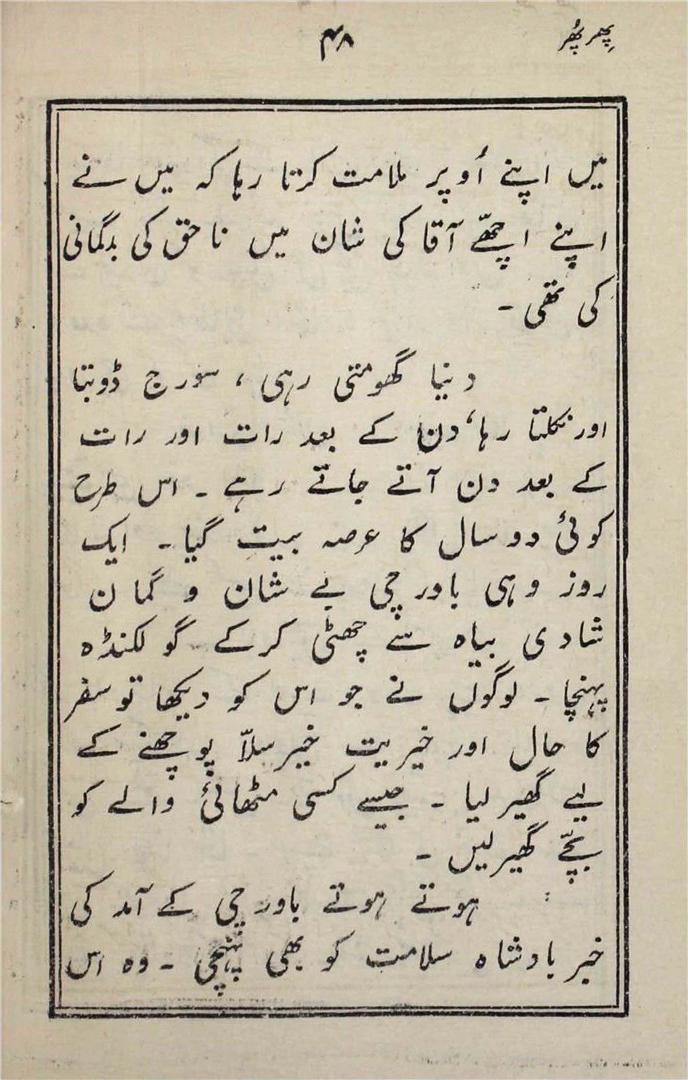 پھر پھُر
۴۸
میں اپنے اُوپر ملامت کرتا رہا کہ میں نے
اپنے اچھّے آقا کی شان میں ناحق کی بدگمانی
کی تھی ۔
دنیا گھومتی رہی ، سورج ڈوبتا
اور نکلتا رہا، دن کے بعد رات اور رات
کے بعد دن آتے جاتے رہے ۔ اس طرح
کوئی دو سال کا عرصہ بیت گیا ۔ ایک
روز وہی باورچی بے شان و گمان
شادی بیاہ سے چھٹی کرکے گولکنڈہ
پہنچا ۔ لوگوں نے جو اس کو دیکھا تو سفر
کا حال اور خیریت خیر سلاّ پوچھنے کے
لیے گھیر لیا ۔ جیسے کسی مٹھائی والے کو
بچّے گھیر لیں ۔
ہوتے ہوتے باورچی کے آمد کی
خبر بادشاہ سلامت کو بھی پہنچی ۔ وہ اس